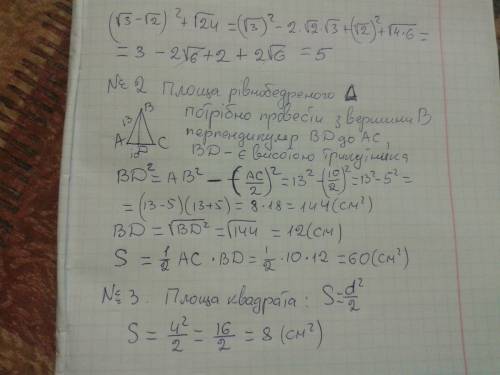 (√3-√2)²+√24=(√3)²-2·√2·√3+(√2)²+√4·6=
=3-2√6+2+2√6=5
№2 Площа рівнобедреного Δ
потрібно провести з вершини B
перпендикуляр BD до AC,
BD - є висотою трикутника
13 B
A C
D
10
BD²=AB²-(AC/2)²=13²-(10/2)²=13²-5²=
=(13-5)(13+5)=8·18=144(см²)
BD=√BD²=√144=12(см)
S=1/2 AC·BD=1/2·10·12=60(см²)
№3. Площа квадрата: S=d²/2
S=4²/2=16/2=8(см²)